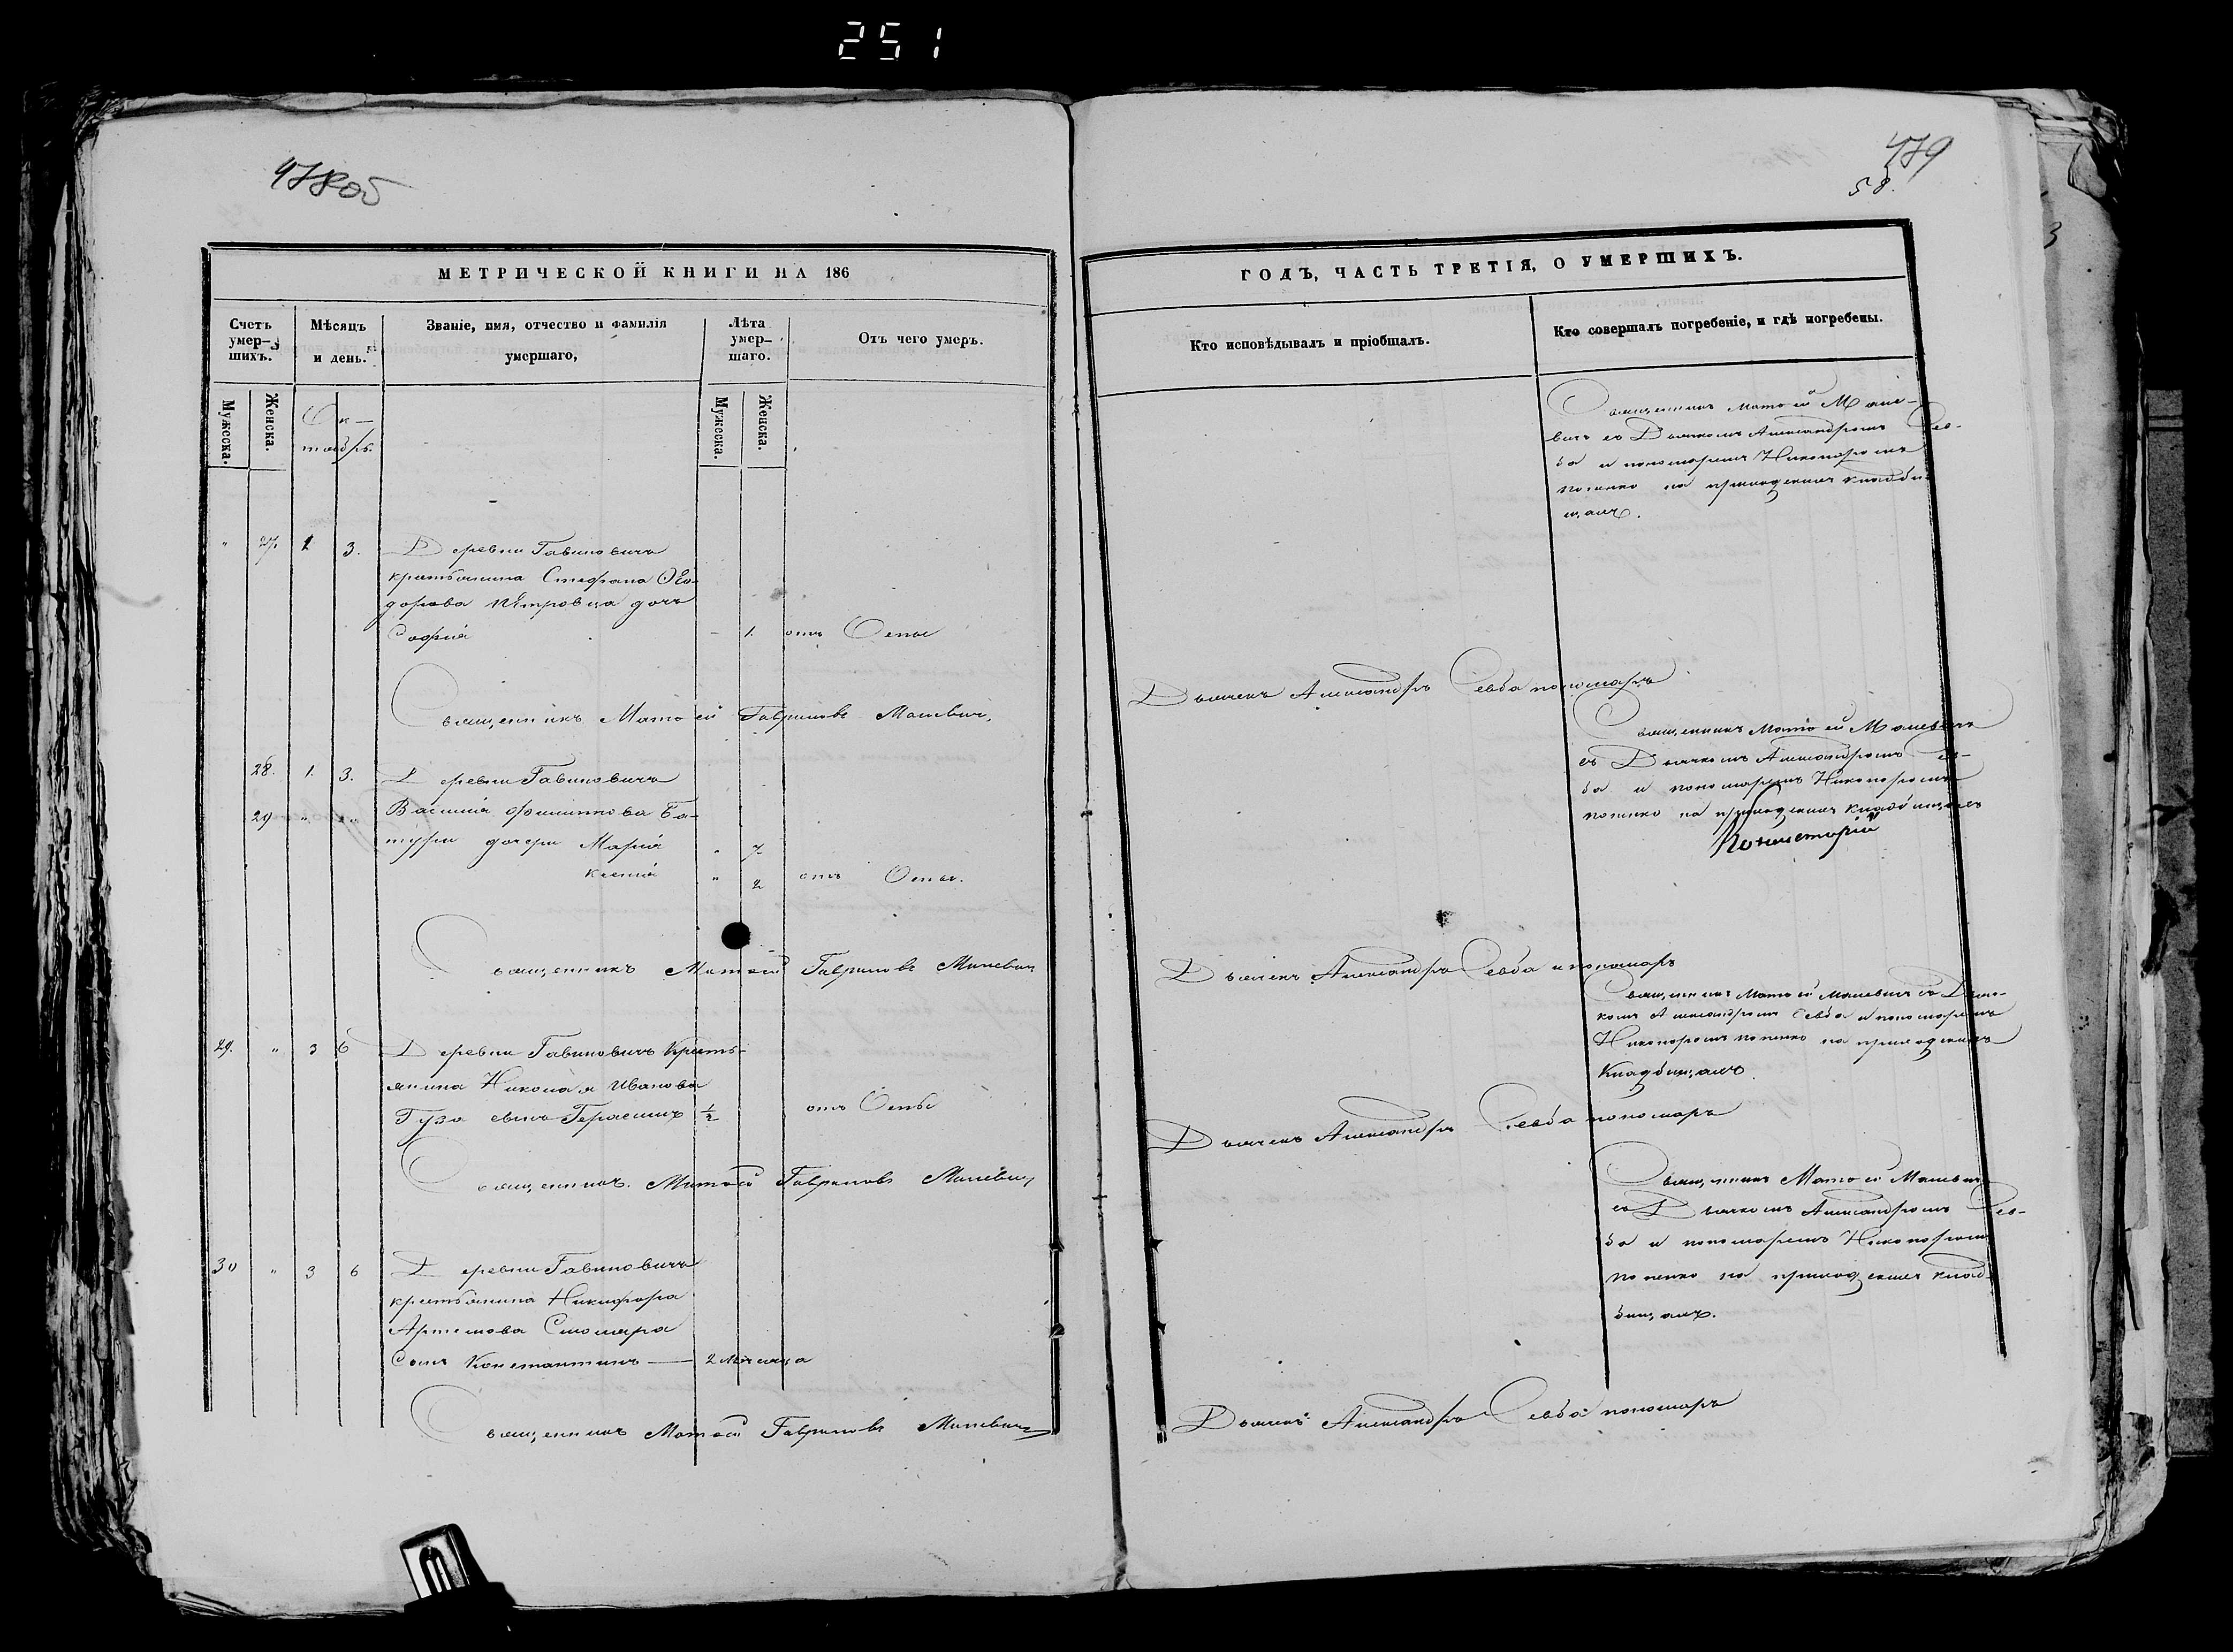 251
478об
479
58.
МЕТРИЧЕСКОЙ КНИГИ НА 186
Счетъ умер-шихъ.
Мѣсяцъ и день.
Званіе, имя, отчество и фамилія умершаго,
Лѣта умер-шаго.
Отъ чего умеръ.
Мужеска.
Женска.
Ок-
тобрь
Мужеска.
Женска.
" 27. 1 3. Деревни Гавиновичъ
крестьянина Стефана Ѳео-
дорова Петровца дочь
Софiя - 1. отъ Оспы
Священникъ Матѳей Гавриловъ Малевичъ,
28. 1. 3. Деревни Гавиновичъ
29 " " Василiя Филиппова Ба-
туры дочери Марiя " 7
Ксенiя " 2 отъ Оспы.
Священникъ Матѳей Гавриловъ Малевич
29. " 3 6 Деревни Гавиновичъ Кресть-
янина Николая Иванова
Гуза сынъ Герасимъ ½ отъ Оспы
Священникъ Матѳей Гавриловъ Малевич,
30 " 3 6 Деревни Гавиновичъ
крестьянина Никифора
Артемова Столяра
сынъ Константинъ — 2 мѣсяца
Священникъ Матѳей Гавриловъ Малевичъ
ГОДЪ, ЧАСТЬ ТРЕТІЯ, О УМЕРШИХЪ.
Кто исповѣдывалъ и пріобщалъ.
Кто совершалъ погребеніе, и гдѣ погребены.
Священникъ Матѳей Мале-
вичъ съ Дьячкомъ Александромъ Сев-
ба и пономаремъ Никопоромъ
попенко на приходскихъ кладби-
щахъ.
Дьячекъ Александръ Севба пономарь
Священникъ Матѳей Малевичъ
съ Дьячкомъ Александромъ Сев-
ба и пономаремъ Никопоромъ
попенко на приходскихъ кладбищахъ
Дьячекъ Александръ Севба и пономарь
Священникъ Матѳей Малевичъ съ Дьяч-
комъ Александромъ Севба и пономаремъ
Никопоромъ попенко на приходскихъ
Кладбищахъ
Дьячекъ Александръ Севба пономарь
Священникъ Матѳей Малевич
съ Дьячкомъ Александромъ Сев-
ба и пономаремъ Никопором
попенко на приходскихъ клад-
бищахъ.
Дьячекъ Александръ Севба пономарь